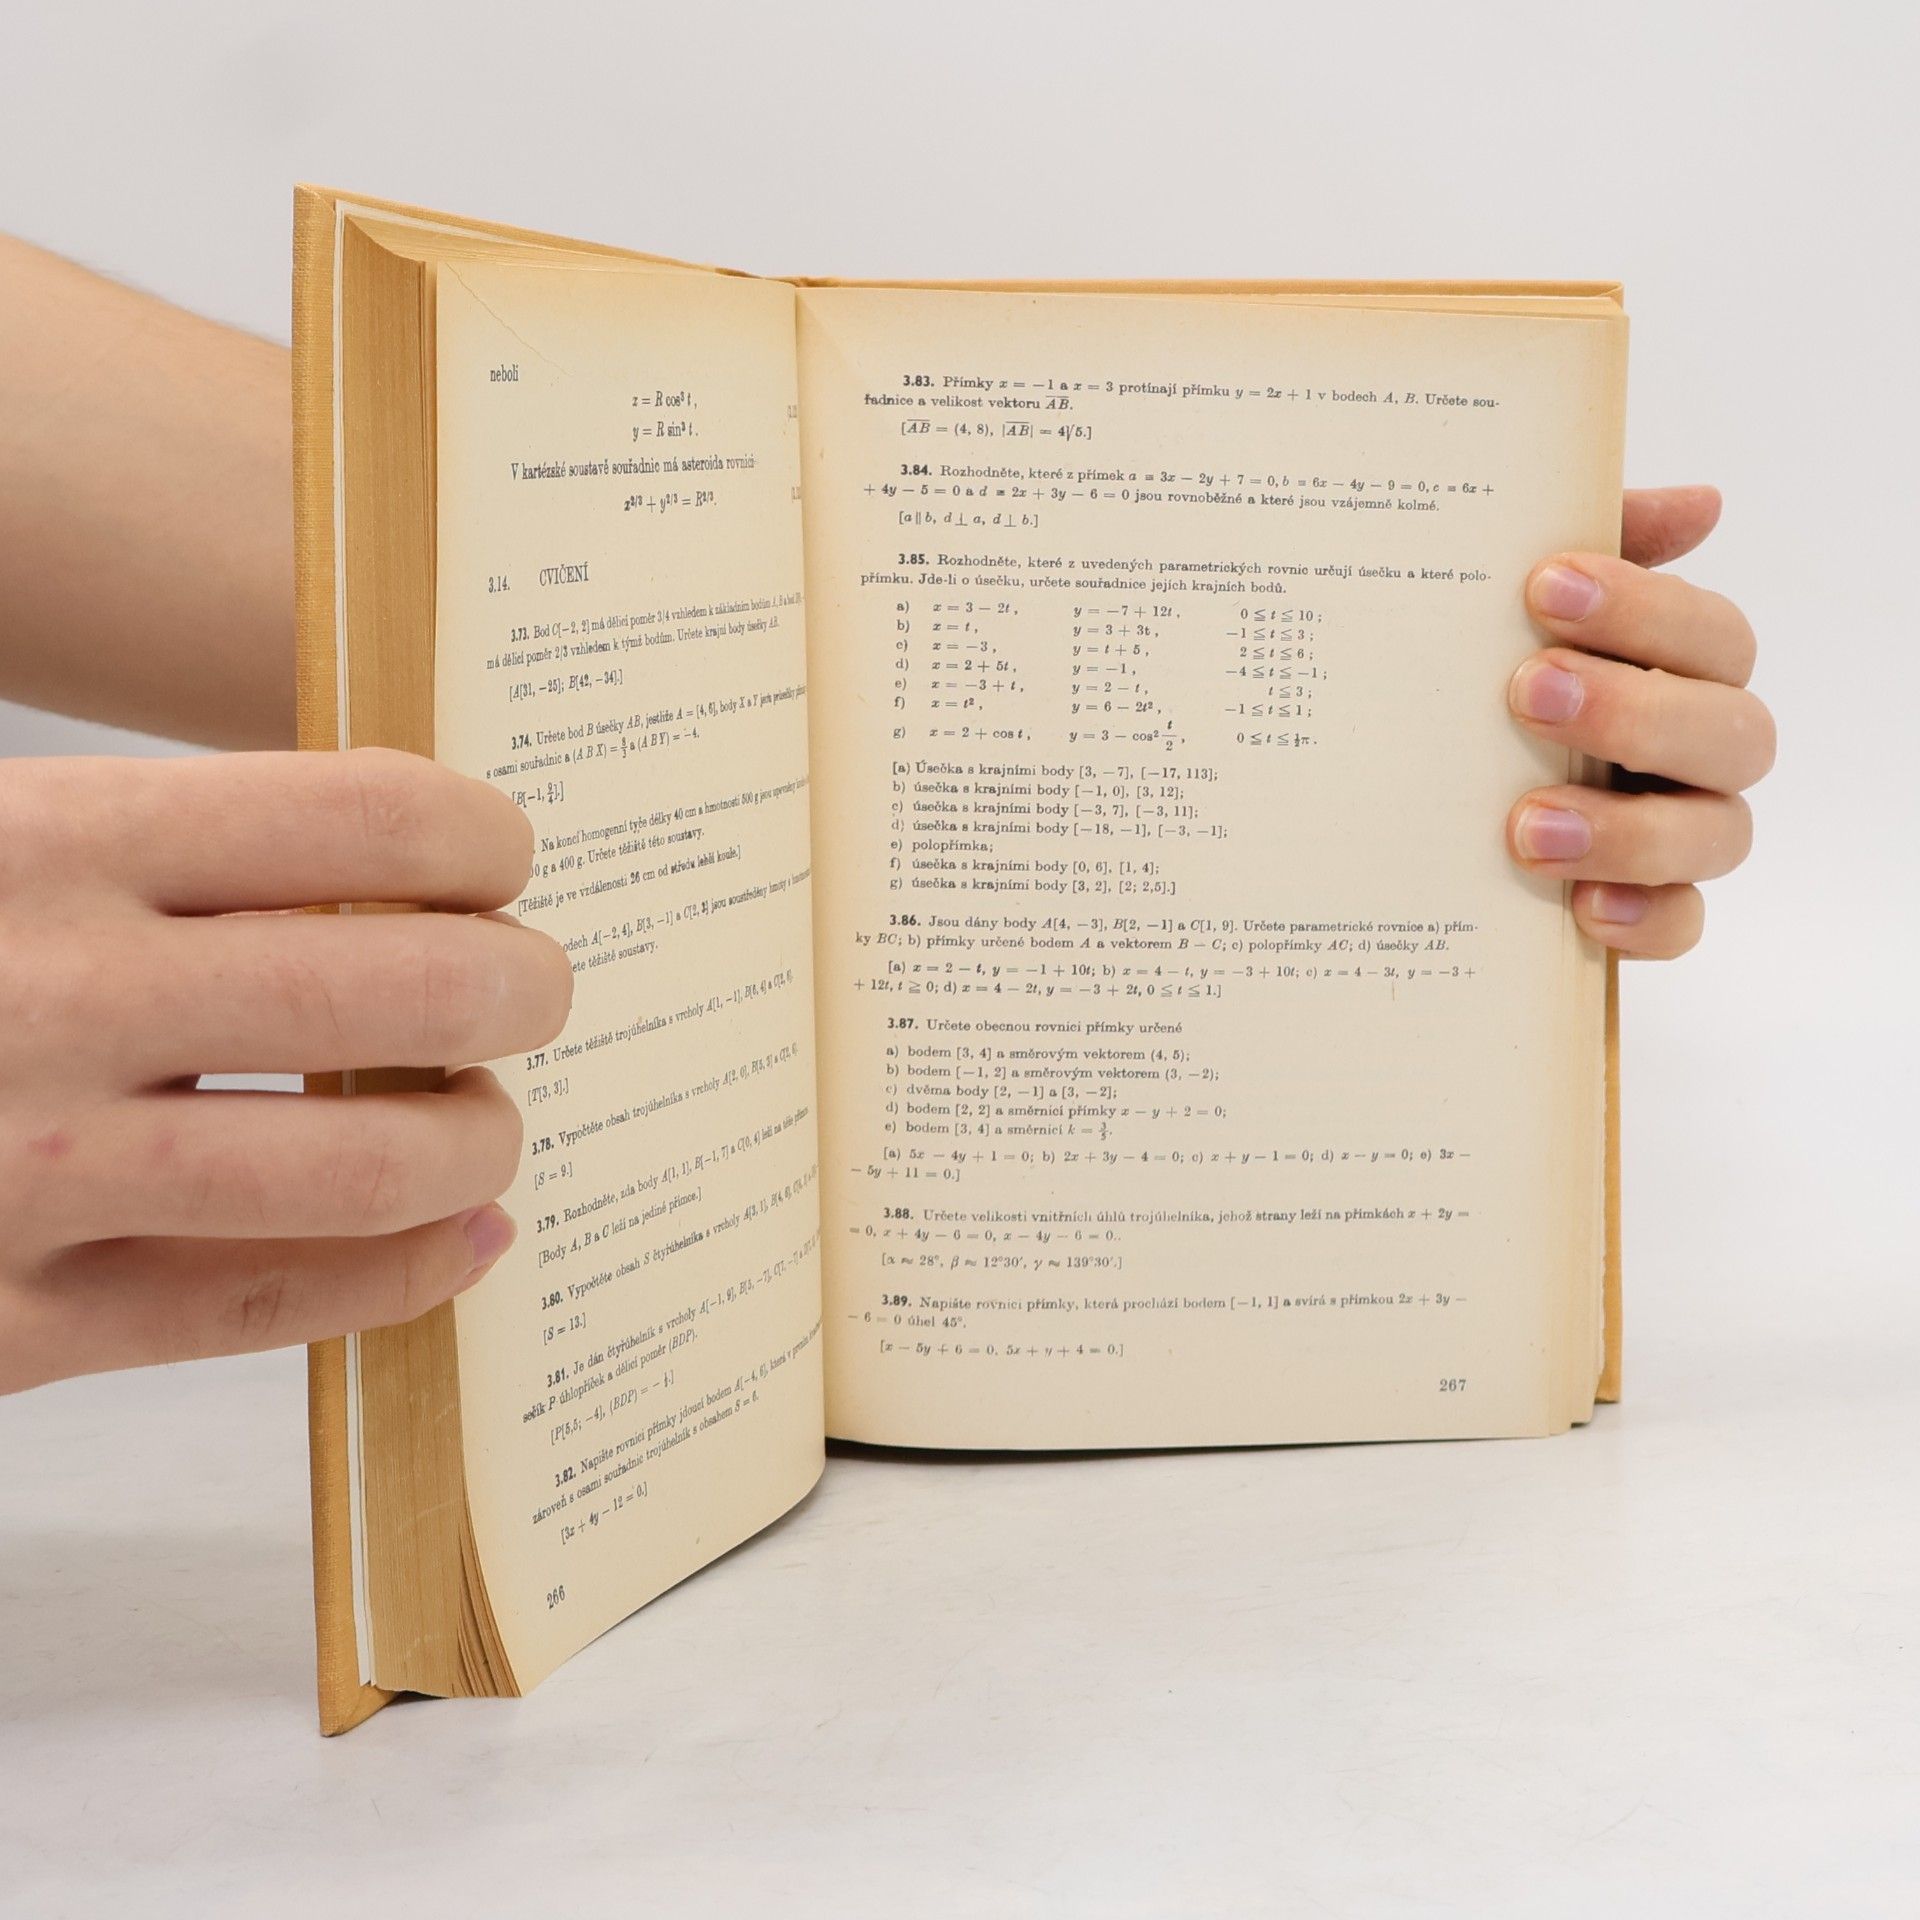 neboli
x = R cos³ t ,
y = R sin³ t .
V kartézské soustavě souřadnic má asteroida rovnici
x^{2/3} + y^{2/3} = R^{2/3}.
3.14. CVIČENÍ
3.73. Bod C[−2, 2] má dělicí poměr 3/4 vzhledem k základním bodům A, B a bod
má dělicí poměr 2/3 vzhledem k týmž bodům. Určete krajní body úsečky AB.
[A[31, −25]; B[42, −34].]
3.74. Určete bod B úsečky AB, jestliže A = [4, 6], body X a Y jsou průsečíky
s osami souřadnic a (A B X) = 8/3 a (A B Y) = −4.
[B[−1, 9/4].]
Na konci homogenní tyče délky 40 cm a hmotnosti 500 g jsou upevněny
0 g a 400 g. Určete těžiště této soustavy.
[Těžiště je ve vzdálenosti 26 cm od středu lehčí koule.]
odech A[−2, 4], B[3, −1] a C[2, 3] jsou soustředěny hmoty s
ete těžiště soustavy.
3.77. Určete těžiště trojúhelníka s vrcholy A[1, −1], B[6, 4] a C[2, 6].
[T[3, 3].]
3.78. Vypočtěte obsah trojúhelníka s vrcholy A[2, 0], B[5, 3] a C[2, 6].
[S = 9.]
3.79. Rozhodněte, zda body A[1, 1], B[−1, 7] a C[0, 4] leží na téže přímce.
[Body A, B a C leží na jediné přímce.]
3.80. Vypočtěte obsah S čtyřúhelníka s vrcholy A[3, 1], B[4, 6],
[S = 13.]
3.81. Je dán čtyřúhelník s vrcholy A[−1, 9], B[5, −7], C[7, −7] a
sečík P úhlopříček a dělicí poměr (BDP).
[P[5,5; −4], (BDP) = −
3.82. Napište rovnici přímky jdoucí bodem A[−4, 6], která v prvním
zároveň s osami souřadnic trojúhelník s obsahem S = 6.
[3x + 4y − 12 = 0.]
266
3.83. Přímky x = −1 a x = 3 protínají přímku y = 2x + 1 v bodech A, B. Určete sou-
řadnice a velikost vektoru AB.
[AB = (4, 8), |AB| = 4√5.]
3.84. Rozhodněte, které z přímek a ≡ 3x − 2y + 7 = 0, b ≡ 6x − 4y − 9 = 0, c ≡ 6x +
+ 4y − 5 = 0 a d ≡ 2x + 3y − 6 = 0 jsou rovnoběžné a které jsou vzájemně kolmé.
[a ∥ b, d ⊥ a, d ⊥ b.]
3.85. Rozhodněte, které z uvedených parametrických rovnic určují úsečku a které polo-
přímku. Jde-li o úsečku, určete souřadnice jejích krajních bodů.
a) x = 3 − 2t , y = −7 + 12t , 0 ≦ t ≦ 10 ;
b) x = t , y = 3 + 3t , −1 ≦ t ≦ 3 ;
c) x = −3 , y = t + 5 , 2 ≦ t ≦ 6 ;
d) x = 2 + 5t , y = −1 , −4 ≦ t ≦ −1 ;
e) x = −3 + t , y = 2 − t , t ≦ 3 ;
f) x = t² , y = 6 − 2t² , −1 ≦ t ≦ 1 ;
g) x = 2 + cos t , y = 3 − cos² t/2 , 0 ≦ t ≦ ½π .
[a) Úsečka s krajními body [3, −7], [−17, 113];
b) úsečka s krajními body [−1, 0], [3, 12];
c) úsečka s krajními body [−3, 7], [−3, 11];
d) úsečka s krajními body [−18, −1], [−3, −1];
e) polopřímka;
f) úsečka s krajními body [0, 6], [1, 4];
g) úsečka s krajními body [3, 2], [2; 2,5].]
3.86. Jsou dány body A[4, −3], B[2, −1] a C[1, 9]. Určete parametrické rovnice a) přím-
ky BC; b) přímky určené bodem A a vektorem B − C; c) polopřímky AC; d) úsečky AB.
[a) x = 2 − t, y = −1 + 10t; b) x = 4 − t, y = −3 + 10t; c) x = 4 − 3t, y = −3 +
+ 12t, t ≧ 0; d) x = 4 − 2t, y = −3 + 2t, 0 ≦ t ≦ 1.]
3.87. Určete obecnou rovnici přímky určené
a) bodem [3, 4] a směrovým vektorem (4, 5);
b) bodem [−1, 2] a směrovým vektorem (3, −2);
c) dvěma body [2, −1] a [3, −2];
d) bodem [2, 2] a směrnicí přímky x − y + 2 = 0;
e) bodem [3, 4] a směrnicí k = 3/5.
[a) 5x − 4y + 1 = 0; b) 2x + 3y − 4 = 0; c) x + y − 1 = 0; d) x − y = 0; e) 3x −
− 5y + 11 = 0.]
3.88. Určete velikosti vnitřních úhlů trojúhelníka, jehož strany leží na přímkách x + 2y =
= 0, x + 4y − 6 = 0, x − 4y − 6 = 0..
[α ≈ 28°, β ≈ 12°30′, γ ≈ 139°30′.]
3.89. Napište rovnici přímky, která prochází bodem [−1, 1] a svírá s přímkou 2x + 3y −
− 6 = 0 úhel 45°.
[x − 5y + 6 = 0, 5x + y + 4 = 0.]
267